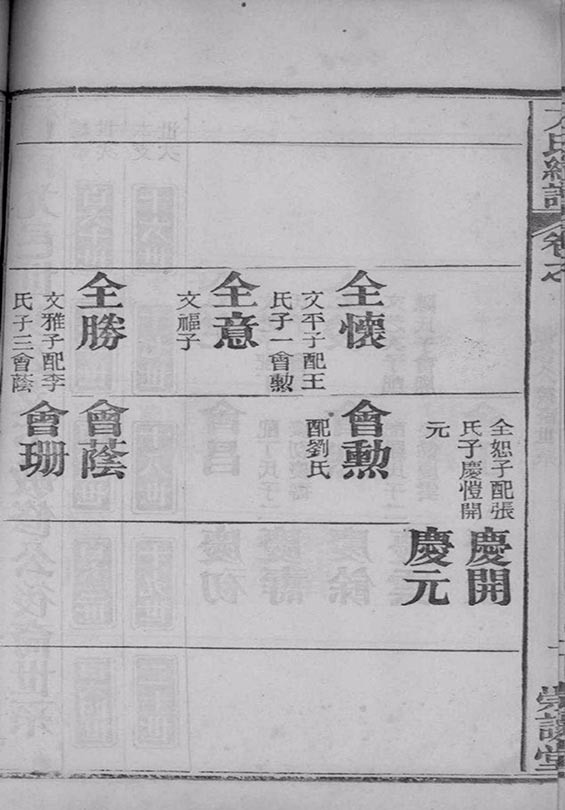 氏續譜
卷之
崇讓堂
全懷
文平子配王
氏子一會勲
全意
文福子
全勝
文雅子配李
氏子三會蔭
全恕子配張
氏子慶愷開
元
會勲
配劉氏
會蔭
會珊
慶開
慶元